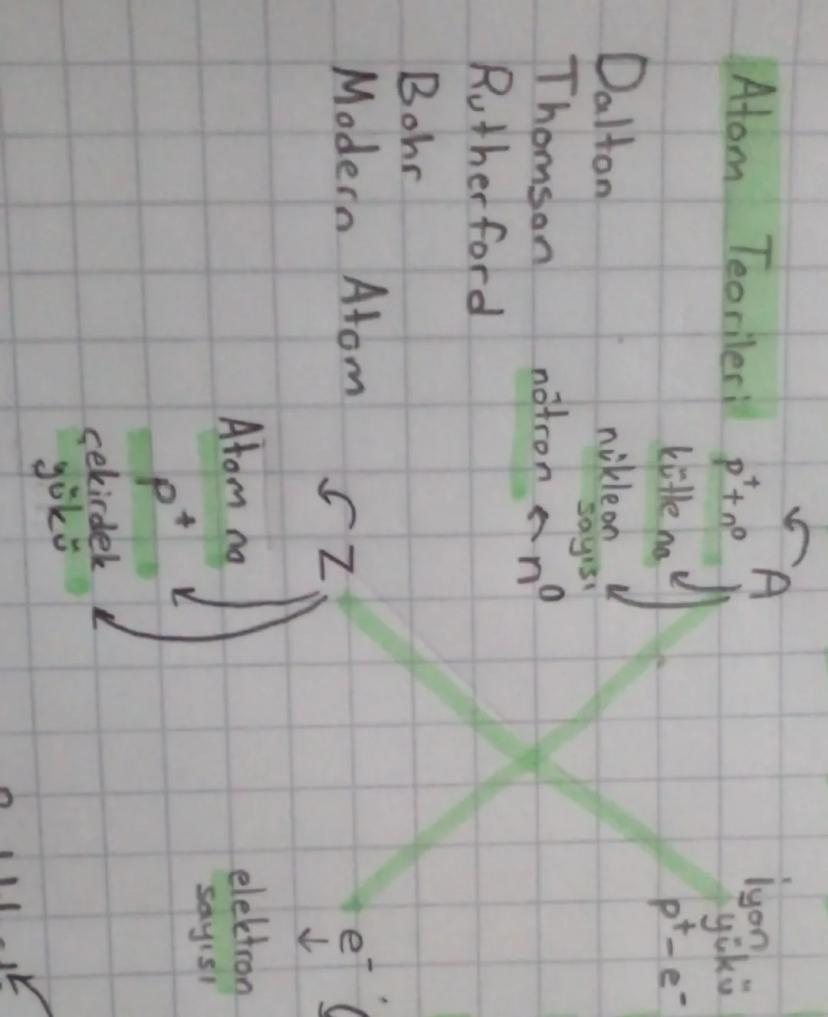 Atom Teorileri
Dalton
Thomson
Rutherford
Bohr
Modern Atom
A
p⁺+n⁰
kütle no
nükleon
sayısı
nötron ← n⁰
Z
Atom no
p⁺
çekirdek
yükü
İyon
yükü
p⁺-e⁻
e⁻
↓
elektron
sayısı